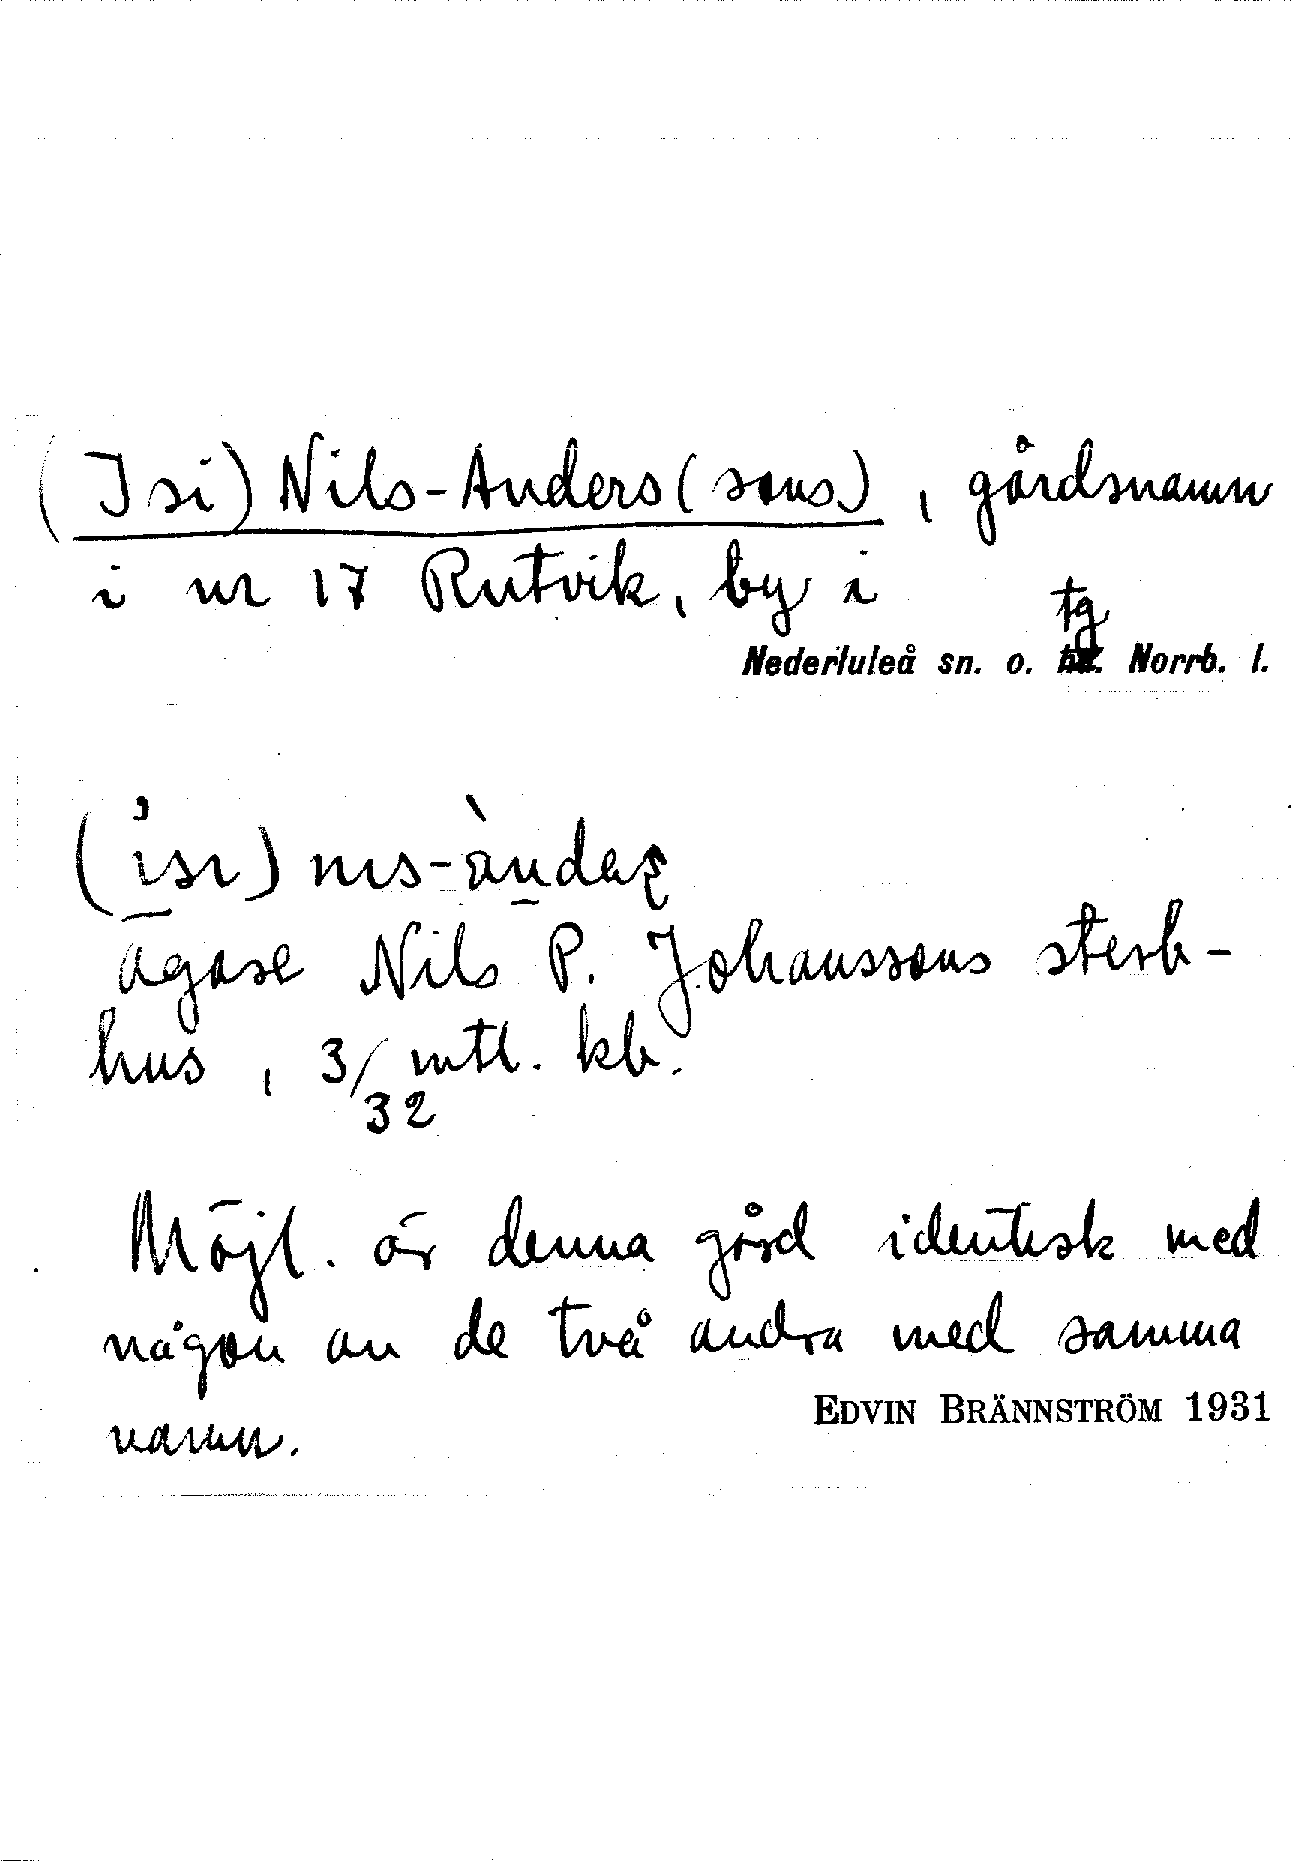 (Isi) Nils-Anders(sons), gårdsnamn
i nr 17 Rutvik, by i
tg
Nederluleå sn. o. Norrb. l.
ägare Nils P. Johanssons sterb-
hus, 3/32 mtl. kb.
Möjl. är denna gård identisk med
någon av de två andra med samma
namn.
EDVIN BRÄNNSTRÖM 1931